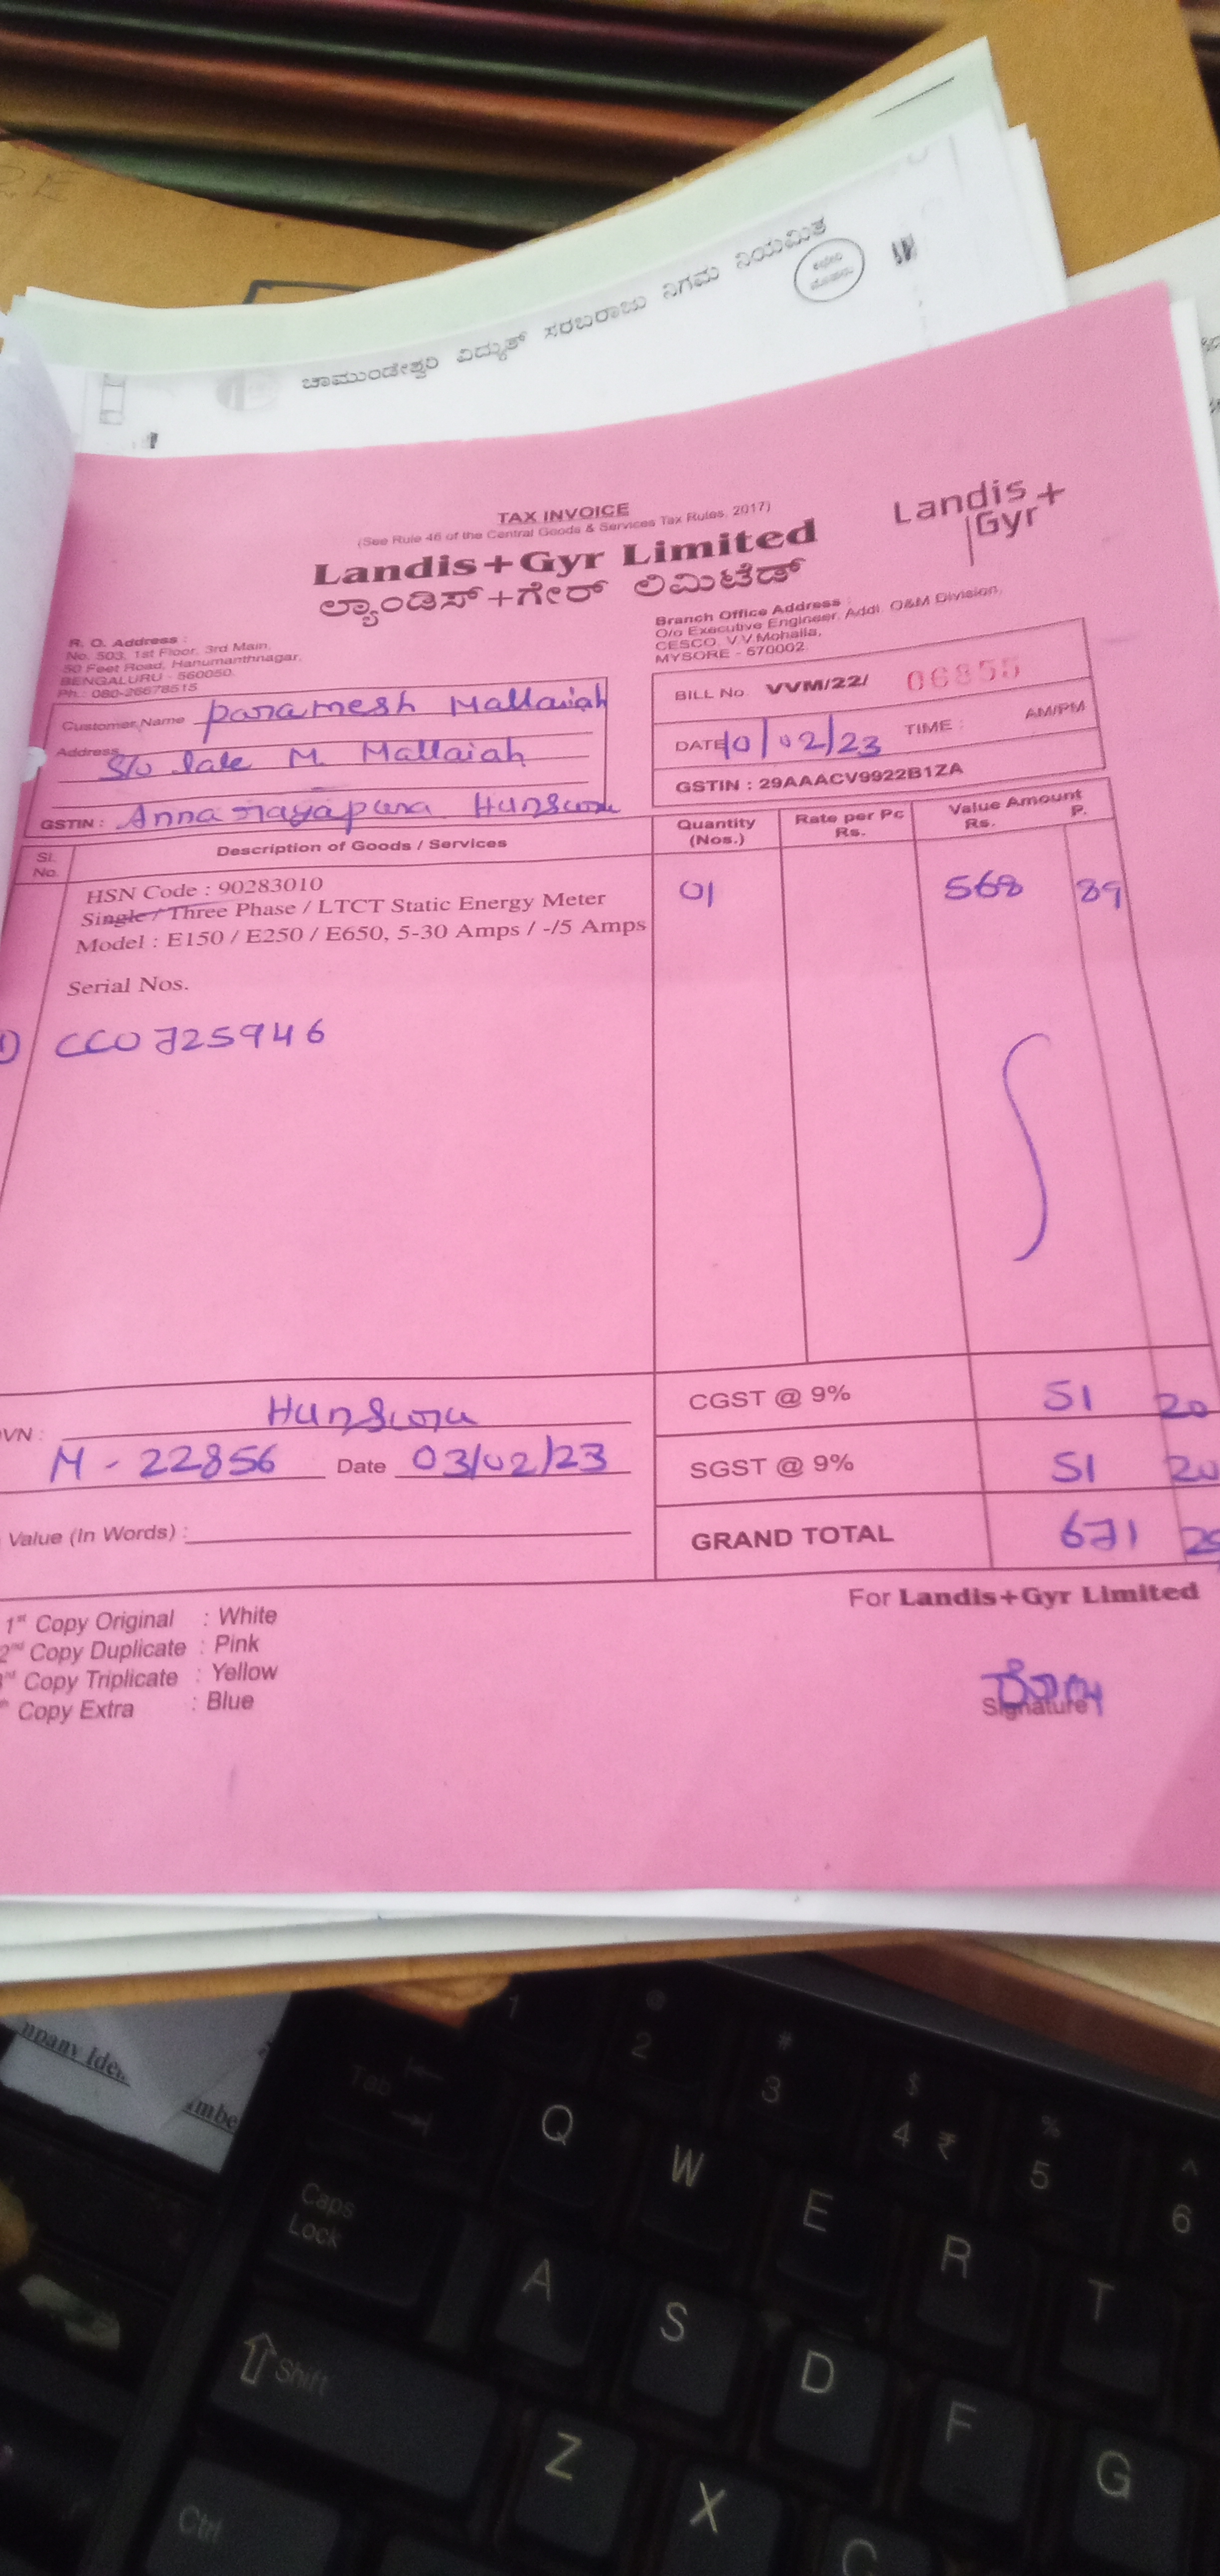 ಚಾಮುಂಡೇಶ್ವರಿ ವಿದ್ಯುತ್ ಸರಬರಾಜು ನಿಗಮ ನಿಯಮಿತ
TAX INVOICE
(See Rule 46 of the Central Goods & Services Tax Rules, 2017)
Landis+Gyr Limited
ಲ್ಯಾಂಡಿಸ್+ಗೇರ್ ಲಿಮಿಟೆಡ್
Landis+
Gyr
R. O. Address :
No. 503, 1st Floor, 3rd Main,
50 Feet Road, Hanumanthnagar,
BENGALURU - 560050.
Ph.: 080-26678515
Branch Office Address :
O/o Executive Engineer, Addl. O&M Division,
CESCO, V.V.Mohalla,
MYSORE - 570002.
Customer Name Paramesh Mallaiah
Address S/o late M. Mallaiah
GSTIN : Annarayapura Hunsuru
BILL No. VVM/22/ 06855
DATE 10/02/23 TIME : AM/PM
GSTIN : 29AAACV9922B1ZA
Sl. No. Description of Goods / Services Quantity (Nos.) Rate per Pc Rs. Value Amount Rs. P.
HSN Code : 90283010
Single / Three Phase / LTCT Static Energy Meter 01 568 89
Model : E150 / E250 / E650, 5-30 Amps / -/5 Amps
Serial Nos.
1) CC0725946
CGST @ 9% 51 20
VN : Hunsuru
M - 22856 Date 03/02/23
SGST @ 9% 51 20
Value (In Words) :
GRAND TOTAL 671 29
For Landis+Gyr Limited
1st Copy Original : White
2nd Copy Duplicate : Pink
Copy Triplicate : Yellow
Copy Extra : Blue
Signature
1 @ 2 # 3 $ 4 ₹ % 5 ^ 6
Tab Q W E R T
Caps Lock A S D F G
Shift Z X C
Ctrl